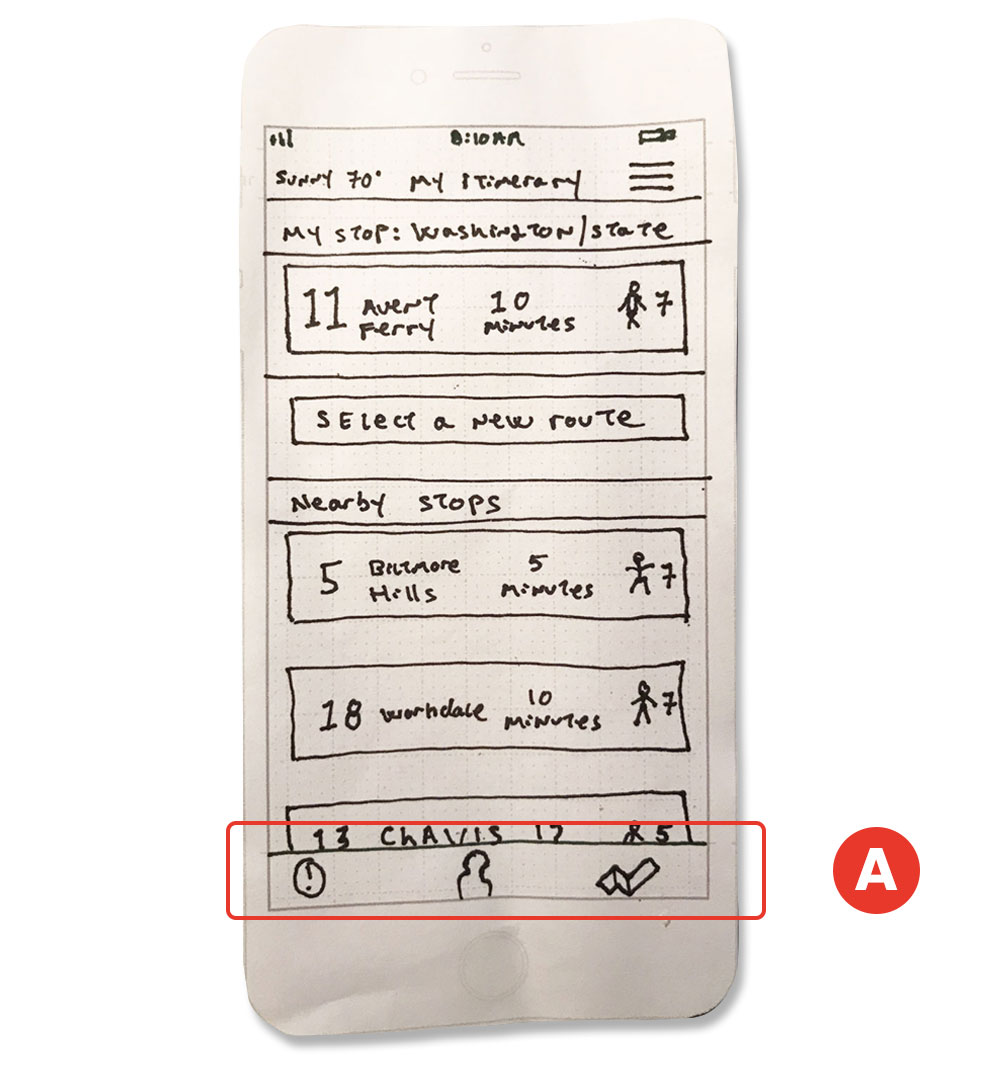 8:10AM
Sunny 70° My Itinerary
My stop: Washington/State
11 Avery Ferry 10 Minutes 7
Select a new route
Nearby stops
5 Biltmore Hills 5 Minutes 7
18 Worthdale 10 Minutes 7
13 Chavis 17 5
!
A